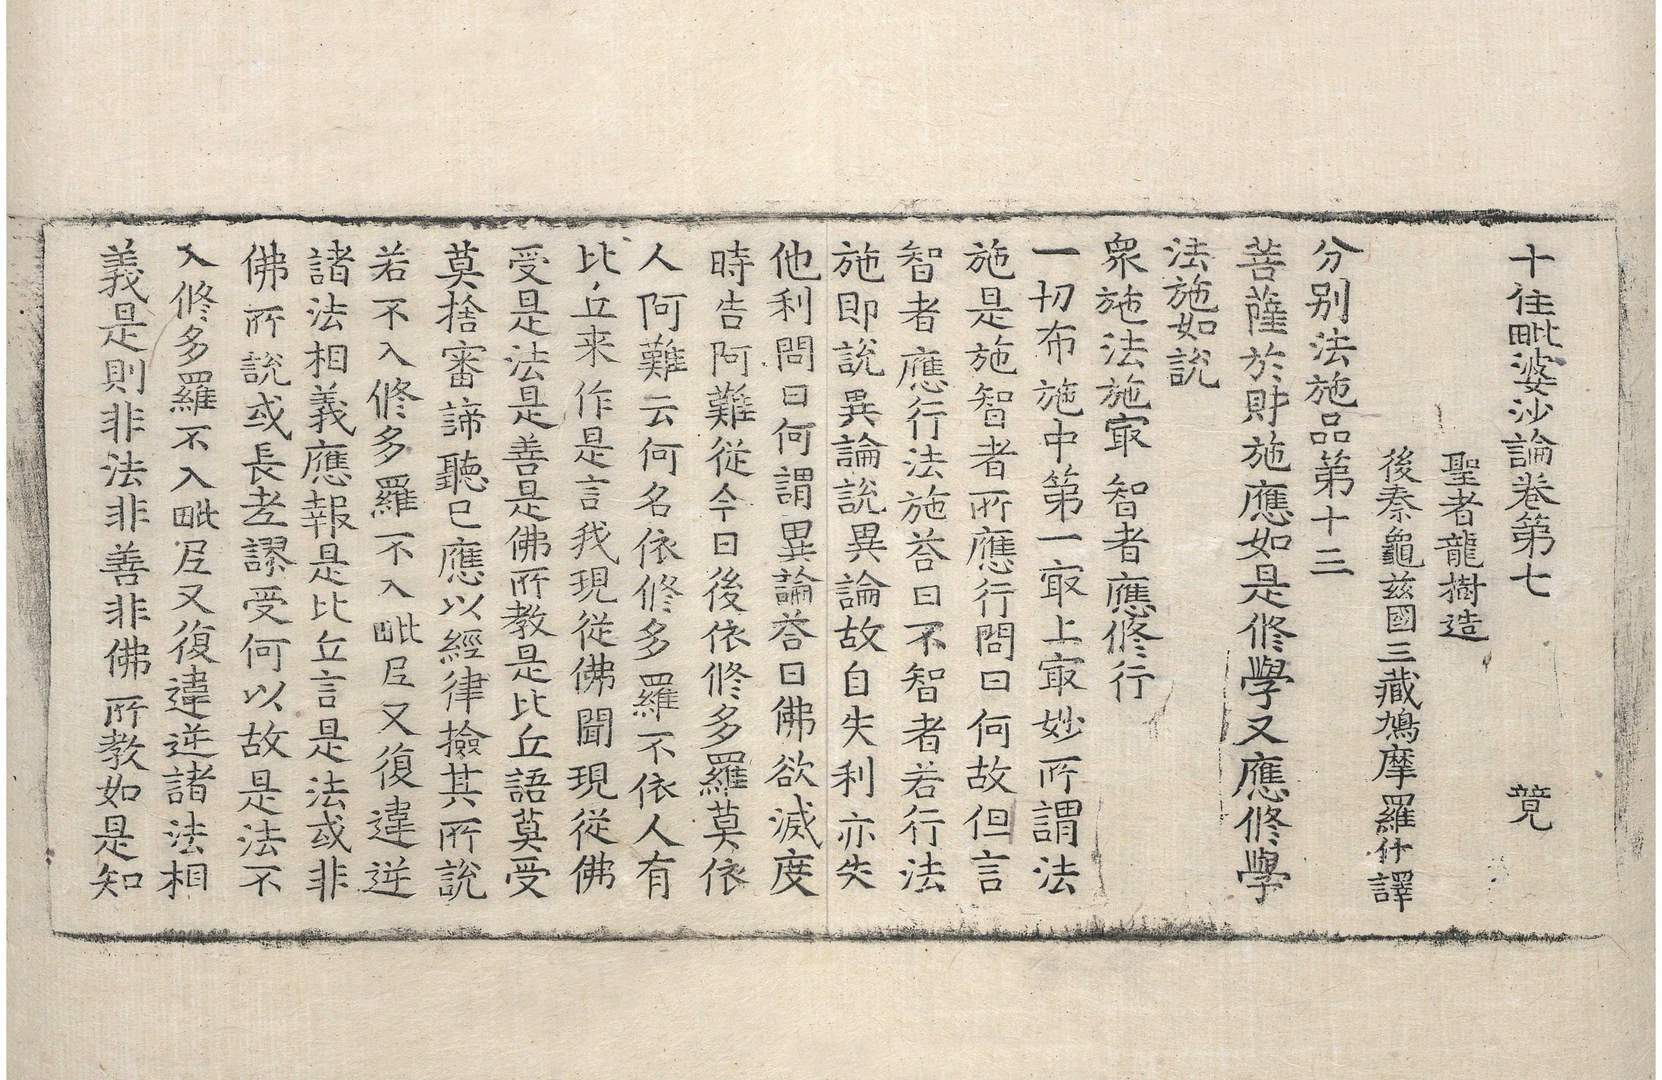 十住毗婆沙論卷第七　竟
聖者龍樹造
後秦龜茲國三藏鳩摩羅什譯
分別法施品第十三
菩薩於財施應如是修學又應修學
法施如說
衆施法施冣智者應修行
一切布施中第一冣上冣妙所謂法
施是施智者所應行問曰何故但言
智者應行法施荅曰不智者若行法
施即說異論說異論故自失利亦失
他利問曰何謂異論荅曰佛欲滅度
時告阿難從今日後依修多羅莫依
人阿難云何名依修多羅不依人有
比丘来作是言我現從佛聞現從佛
受是法是善是佛所教是比丘語莫受
莫捨審諦聽已應以經律撿其所說
若不入修多羅不入毗尼又復違逆
諸法相義應報是比丘言是法或非
佛所說或長老謬受何以故是法不
入修多羅不入毗尼又復違逆諸法相
義是則非法非善非佛所教如是知